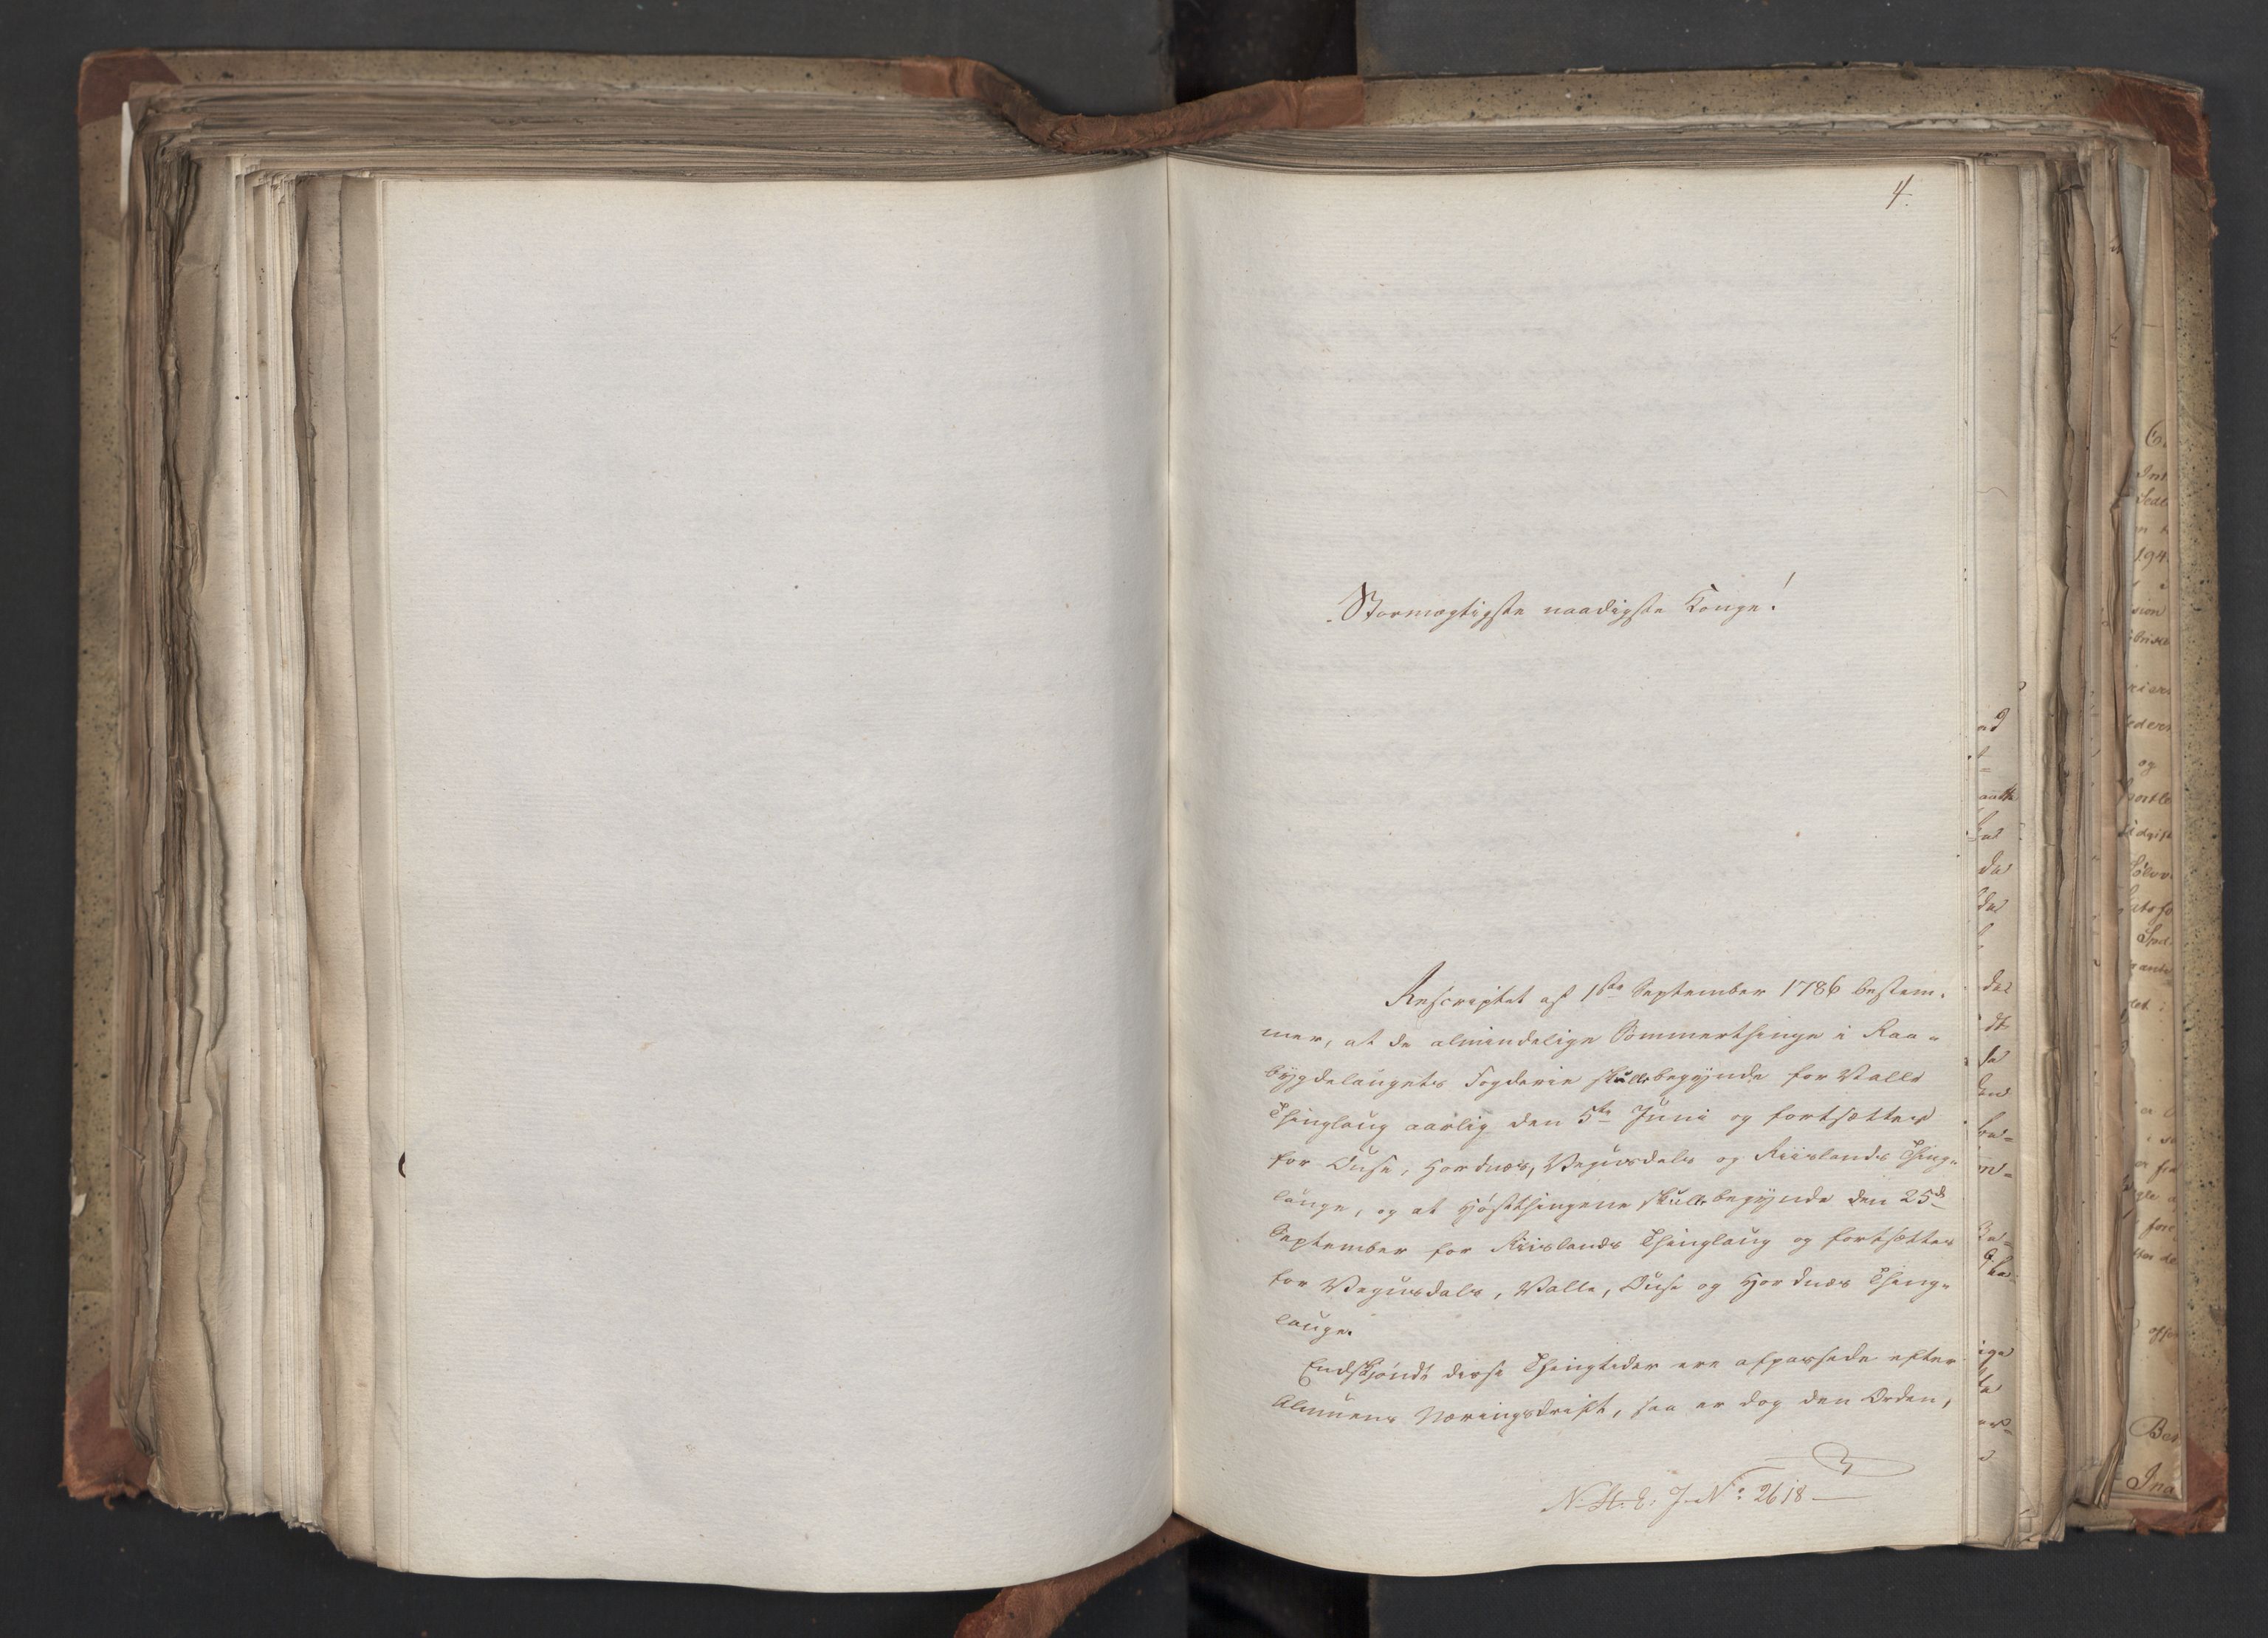 4.
Stormægtigste naadigste Konge!
Rescriptet af 1ste September 1786 bestem-
mer, at de almindelige Sommerthinge i Raa-
bygdelaugets Fogderie skulle begynde for Valle
Thinglaug aarlig den 5te Juni og fortsættes
for Ouse, Hordnæs, Vegusdals og Riislands Thing-
lauge, og at Høstthingene skulle begynde den 25de
September for Riislands Thinglaug og fortsættes
for Vegusdals, Valle, Ouse og Hordnæs Thing-
lauge.
Endskjøndt disse Thingtider ere afpassede efter
Almuens Næringsdrift, saa er dog den Orden,
J. No: 2618